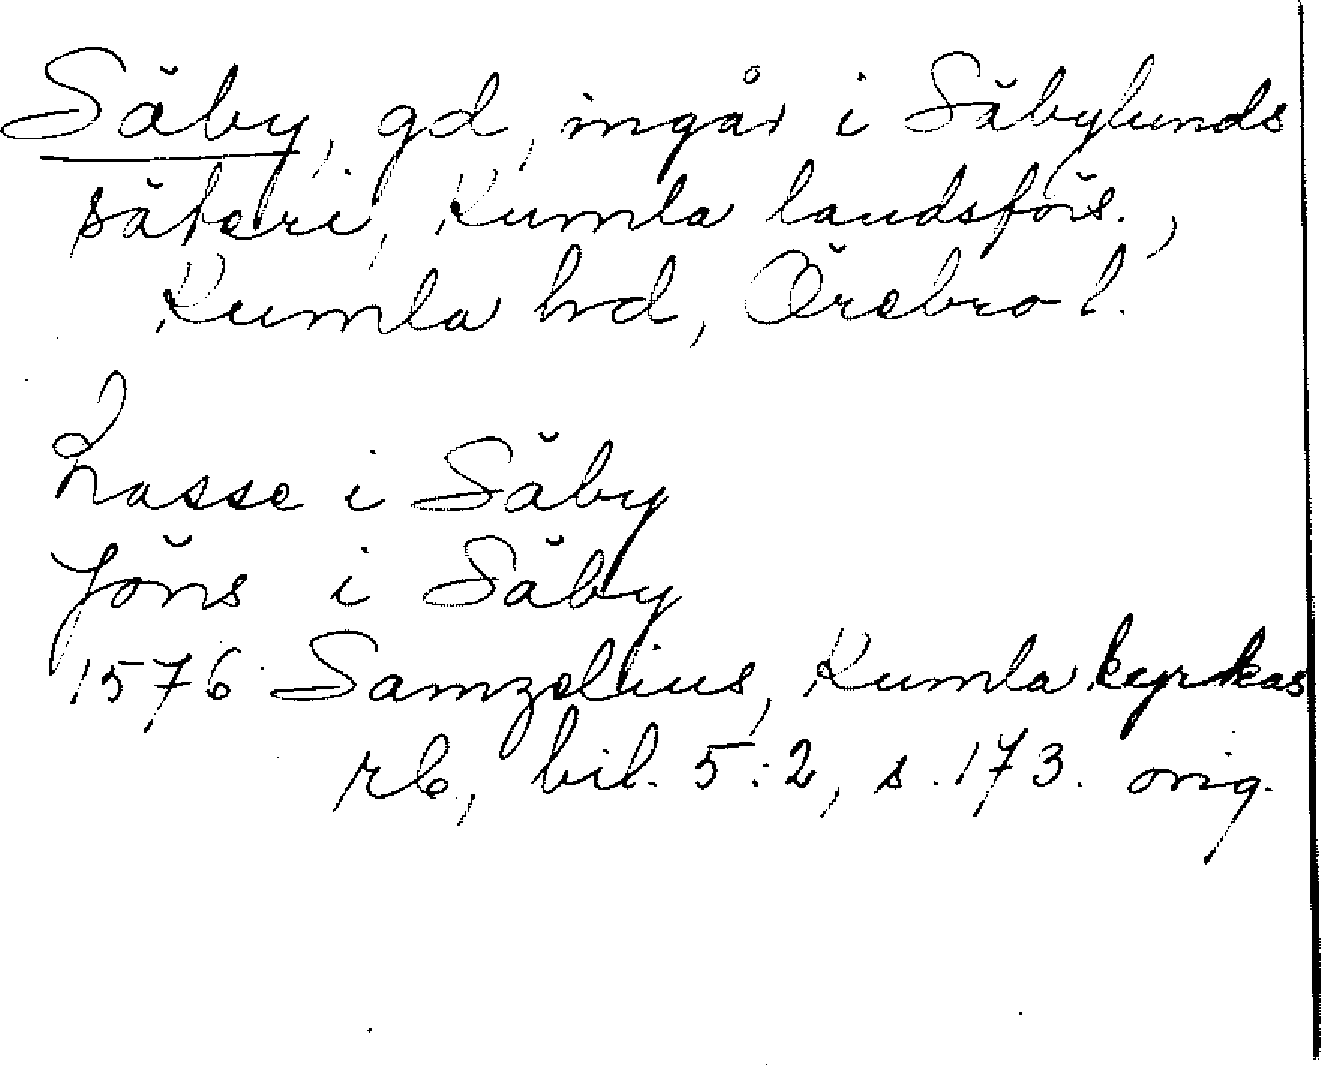 Säby, gd, ingår i Säbylunds
säteri, Kumla landsförs.,
Kumla hd, Örebro l.
Lasse i Säby
Jöns i Säby
1576 Samzelius, Kumla kyrkas
rb, bil. 5:2, s. 173. orig.